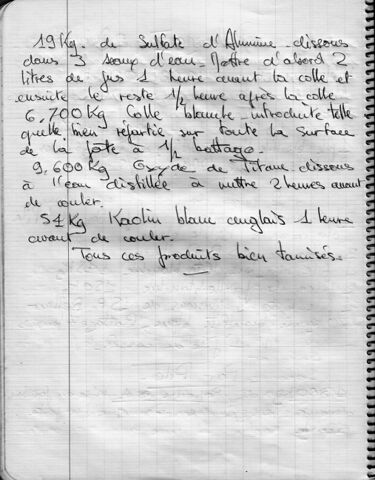 19Kg. de Sulfate d'Alumine dissous
dans 3 seaux d'eau. Mettre d'abord 2
litres de jus 1 heure avant la colle et
ensuite le reste 1/2 heure après la colle
6,700Kg Colle blanche introduite telle
quelle bien répartie sur toute la surface
de la pâte à 1/2 battage.
9,600Kg Oxyde de Titane dissous
à l'eau distillée à mettre 2 heures avant
de couler.
51Kg Kaolin blanc anglais 1 heure
avant de couler.
Tous ces produits bien tamisés.